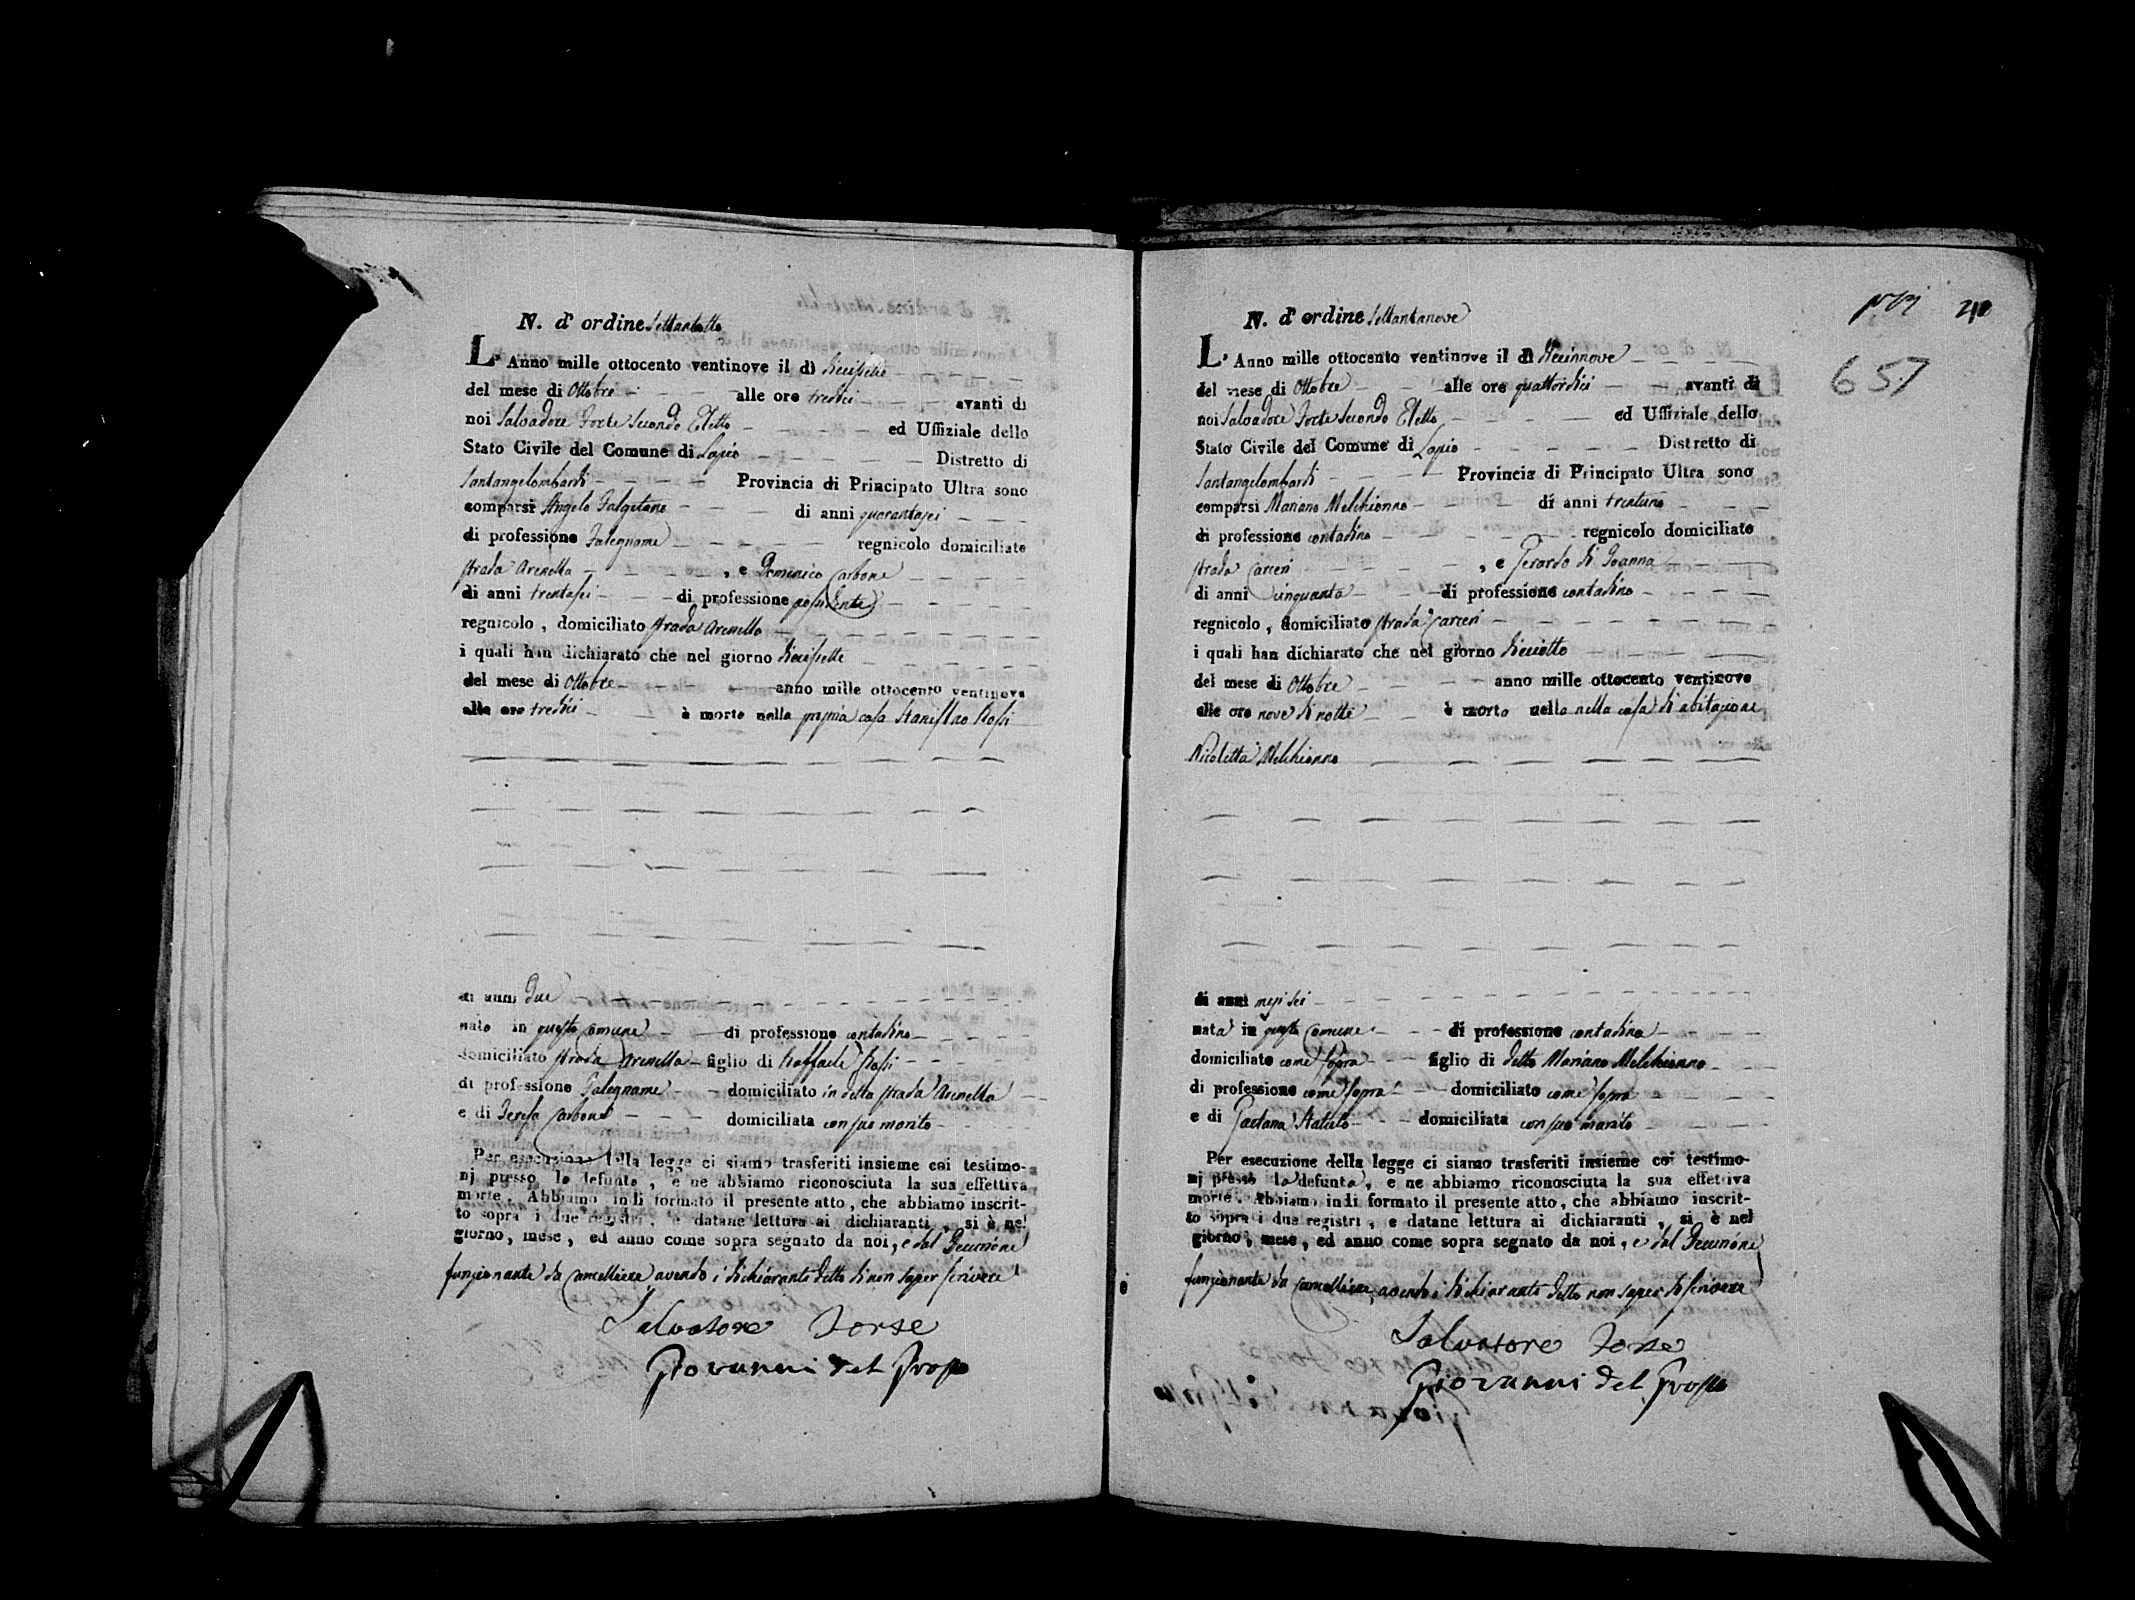 N. d'ordine Settantotto
L'Anno mille ottocento ventinove il dì diecisette
del mese di Ottobre alle ore tredici avanti di
noi Salvadore Forte Secondo Eletto ed Uffiziale dello
Stato Civile del Comune di Lapio Distretto di
Santangelombardi Provincia di Principato Ultra sono
comparsi Angelo di anni quarantasei
di professione Falegname regnicolo domiciliato
strada Arenella , e Domenico Carbone
di anni trentasei di professione possidente
regnicolo , domiciliato strada Arenella
i quali han dichiarato che nel giorno diecisette
del mese di Ottobre anno mille ottocento ventinove
alle ore tredici è morto nella propria casa Stanislao Rossi
di anni due
nato in questo Comune di professione contadino
domiciliato strada Arenella figlio di Raffaele Rossi
di professione Falegname domiciliato in detta strada Arenella
e di Teresa Carbone domiciliata con suo marito
Per esecuzione della legge ci siamo trasferiti insieme coi testimo-
nj presso lo defunto , e ne abbiamo riconosciuta la sua effettiva
morte . Abbiamo indi formato il presente atto , che abbiamo inscrit-
to sopra i due registri , e datane lettura ai dichiaranti , si è nel
giorno , mese , ed anno come sopra segnato da noi , e dal Decurione
funzionante da Cancelliere avendo i dichiaranti detto di non saper scrivere
Salvatore Forte
Giovanni del Grosso
240
657
N. d'ordine Settantanove
L'Anno mille ottocento ventinove il dì diecinnove
del mese di Ottobre alle ore quattordici avanti di
noi Salvadore Forte Secondo Eletto ed Uffiziale dello
Stato Civile del Comune di Lapio Distretto di
Santangelombardi Provincia di Principato Ultra sono
comparsi Mariano Melchionno di anni trentuno
di professione contadino regnicolo domiciliato
strada Carceri , e Gerardo di Joanna
di anni Cinquanta di professione contadino
regnicolo , domiciliato strada Carceri
i quali han dichiarato che nel giorno dieciotto
del mese di Ottobre anno mille ottocento ventinove
alle ore nove di notte è morto nella nella casa di abitazione
Nicoletta Melchionno
di anni mesi sei
nata in questo Comune di professione contadina
domiciliato come sopra figlio di detto Mariano Melchionno
di professione come sopra domiciliato come sopra
e di Gaetana Statuto domiciliata con suo marito
Per esecuzione della legge ci siamo trasferiti insieme coi testimo-
nj presso la defunta , e ne abbiamo riconosciuta la sua effettiva
morte . Abbiamo indi formato il presente atto , che abbiamo inscrit-
to sopra i due registri , e datane lettura ai dichiaranti , si è nel
giorno , mese , ed anno come sopra segnato da noi , e dal Decurione
funzionante da Cancelliere, avendo i dichiaranti detto non saper di scrivere
Salvatore Forte
Giovanni del Grosso